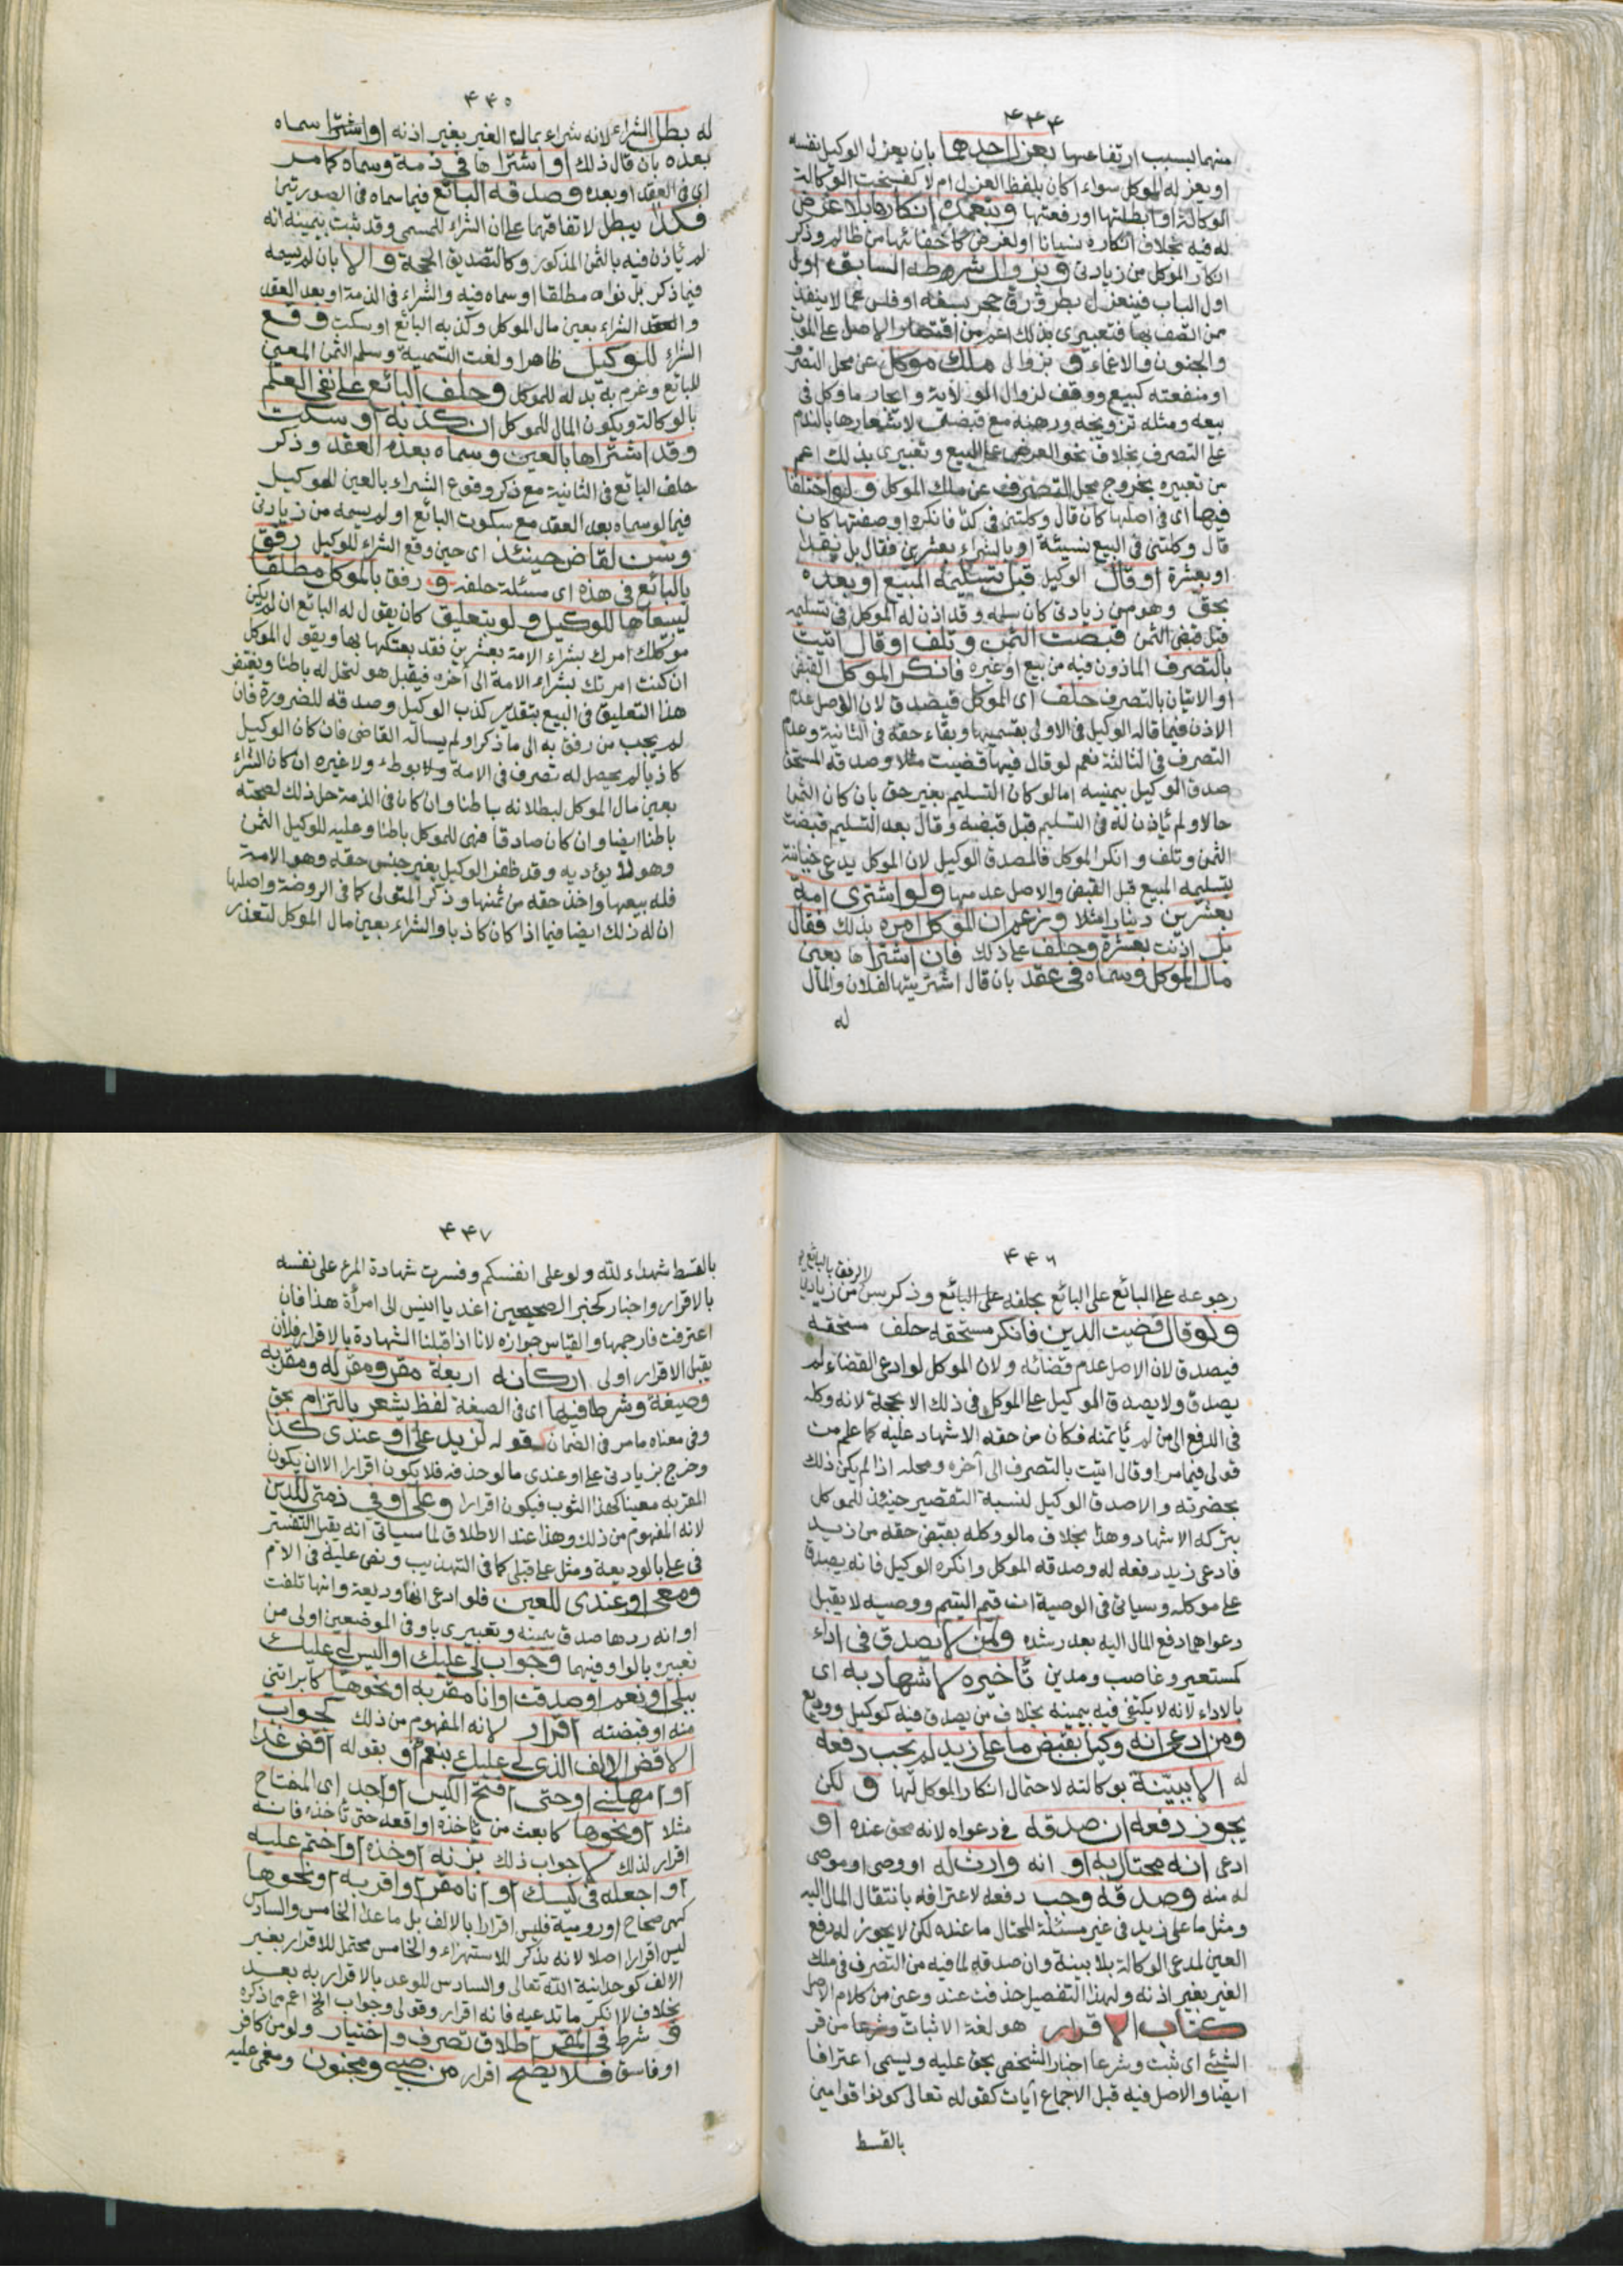 ۴۴۴
منهما بسبب ارتفاعها بعزل احدهما بان يعزل الوكيل نفسه
او يعزله الموكل سواء اكان بلفظ العزل ام لا كفسخت الوكالة
الوكالة او ابطلتها او رفعتها وبتعمده انكارها بلا غرض
له فيه بخلاف انكاره نسيانا او لغرض كاخفائها من ظالم وذكر
انكار الموكل من زيادتي وبزوال شرطه السابق اول
اول الباب فينعزل بطرو رق حجر بسفه او فلس عما لا ينفذ
ممن اتصف بها فتعبيري بذلك اعم من اقتصار الاصل على الموت
والجنون والاغماء وبزوال ملك موكل عن محل التصرف
او منفعته كبيع ووقف لزوال الولاية وايجار ما وكل في
بيعه ومثله تزويجه ورهنه مع قبض لاشعارها بالندم
على التصرف بخلاف نحو العرض على البيع وتعبيري بذلك اعم
من تعبيره بخروج محل التصرف عن ملك الموكل ولو اختلفا
فيها اى في اصلها كان قال وكلتني في كذا فانكره او صفتها كان
قال وكلتني في البيع نسيئة او بالشراء بعشرين فقال بل نقدا
او بعشرة او قال الوكيل قبل تسليمه المبيع او بعده
بحق وهو من زيادتي كان سلمه وقد اذن له الموكل في تسليمه
قبل قبض الثمن قبضت الثمن وتلف او قال اتيت
بالتصرف الماذون فيه من بيع او غيره فانكر الموكل القبض
او الاتيان بالتصرف حلف اى الموكل فيصدق لان الاصل عدم
الاذن فيما قاله الوكيل في الاولى بقسميها وبقاء حقه في الثانية وعدم
التصرف في الثالثة نعم لو قال فيها قضيت مثلا وصدقه المستحق
صدق الوكيل بيمينه اما لو كان التسليم بغير حق بان كان الثمن
حالا ولم ياذن له في التسليم قبل قبضه وقال بعد التسليم قبضت
الثمن وتلف وانكر الموكل فالمصدق الوكيل لان الموكل يدعي خيانته
بتسليمه المبيع قبل القبض والاصل عدمها ولو اشترى امة
بعشرين دينارا مثلا وزعم ان الموكل امره بذلك فقال
بل اذنت بعشرة وحلف على ذلك فان اشتراها بعين
مال الموكل وسماه في عقد بان قال اشتريتها لفلان والمال
له
۴۴۵
له بطل الشراء لانه شراء بمال الغير بغير اذنه او اشترا سماه
بعده بان قال ذلك او اشتراها في ذمة وسماه كما مر
اى في العقد او بعده وصدقه البائع فيما سماه في الصورتين
فكذا يبطل لاتفاقهما على ان الشراء للمسمى وقد ثبت بيمينه انه
لم ياذن فيه بالثمن المذكور وكالتصديق الحجة والا بان لم يسمه
فيما ذكر بل نواه مطلقا او سماه فيه والشراء في الذمة او بعد العقد
والعقد الشراء بعين مال الموكل وكذبه البائع او سكت وقع
الشراء للوكيل ظاهرا ولغت التسمية وسلم الثمن المعين
للبائع وغرم به بدله للموكل وحلف البائع على نفي العلم
بالوكالة ويكون المال للموكل ان كذبه او سكت
وقد اشتراها بالعين وسماه بعده العقد وذكر
حلف البائع في الثانية مع ذكر وقوع الشراء بالعين للموكيل
فيما لو سماه بعد العقد مع سكوت البائع او لم يسمه من زيادتي
وسن لقاض حينئذ اى حين وقع الشراء للوكيل رفق
بالبائع في هذه اى مسئلة حلفه و رفق بالموكل مطلقا
ليبيعاها للوكيل ولو بتعليق كان يقول له البائع ان لم يكن
موكلك امرك بشراء الامة بعشرين فقد بعتكها بها ويقول الموكل
ان كنت امرتك بشراء الامة الى آخره فيقبل هو لتحل له باطنا ويغتفر
هذا التعليق في البيع بتقدير كذب الوكيل وصدقه للضرورة فان
لم يجب من رفق به الى ما ذكر او لم يساله القاضي فان كان الوكيل
كاذبا لم يحصل له تصرف في الامة ولا بوطء ولا غيره ان كان الشراء
بعين مال الموكل لبطلانه باطنا وان كان في الذمة حل ذلك لصحته
باطنا ايضا وان كان صادقا فهى للموكل باطنا وعليه للوكيل الثمن
وهو لا يؤديه وقد ظفر الوكيل بغير جنس حقه وهو الامة
فله بيعها واخذ حقه من ثمنها وذكر المتولى كما في الروضة واصلها
ان له ذلك ايضا فيما اذا كان كاذبا والشراء بعين مال الموكل لتعذر
۴۴۶
الرفق بالبائع
رجوعه على البائع على البائع بحلفه على البائع وذكر سن من زيادتي
ولو قال قضيت الدين فانكر مستحقه حلف مستحقه
فيصدق لان الاصل عدم قضائه ولان الموكل لو ادعى القضاء لم
يصدق ولا يصدق الموكيل على الموكل في ذلك الا بحجة لانه وكله
في الدفع الى من لم ياتمنه فكان من حقه الاشهاد عليه كما علم من
قولي فيما مر او قال اتيت بالتصرف الى آخره ومحله اذا لم يكن ذلك
بحضرته والا صدق الوكيل لنسبة التقصير حينئذ للموكل
بتركه الاشهاد وهذا بخلاف ما لو وكله بقبض حقه من زيد
فادعى زيد رفعه له وصدقه الموكل وانكره الوكيل فانه يصدق
على موكله وسياتي في الوصية ان قيم اليتيم ووصيه لا يقبل
دعواهما دفع المال اليه بعد رشده ولمن لا يصدق في اداء
كمستعير وغاصب ومدين تاخيره لاشهاد به اى
بالاداء لانه لا يكتفي فيه بيمينه بخلاف من يصدق فيه كوكيل ووديع
ومن ادعى انه وكيل بقبض ما على زيد لم يجب دفعه
له الا ببينة بوكالته لاحتمال انكار الموكل لها و لكن
يجوز دفعه ان صدقه في دعواه لانه محق عنده او
ادعى انه محتال به او انه وارث له او وصى او موصى
له منه وصدقه وجب دفعه لاعترافه بانتقال المال اليه
ومثل ما على زيد في غير مسئلة المحتال ما عنده لكن لا يجوز له دفع
العين لمدعى الوكالة بلا بينة وان صدقه لما فيه من التصرف في ملك
الغير بغير اذنه ولهذا التفصيل حذفت عند وعين من كلام الاصل
كتاب الاقرار هو لغة الاثبات وشرعا من قر
الشئ اى ثبت وشرعا اخبار الشخص بحق عليه ويسمى اعترافا
ايضا والاصل فيه قبل الاجماع آيات كقوله تعالى كونوا قوامين
بالقسط
۴۴۷
بالقسط شهداء لله ولو على انفسكم وفسرت شهادة المرء على نفسه
بالاقرار واخبار كخبر الصحيحين اغد يا انيس الى امرأة هذا فان
اعترفت فارجمها والقياس جوازه لانا اذا قبلنا الشهادة بالاقرار فلأن
يقبل الاقرار اولى اركانه اربعة مقر ومقر له ومقر به
وصيغة وشرط فيها اى في الصيغة لفظ يشعر بالتزام بحق
وفي معناه ما مر في الضمان كقوله لزيد على او عندي كذا
وخرج بزيادتي على او عندي ما لو حذفه فلا يكون اقرارا الا ان يكون
المقر به معينا كهذا الثوب فيكون اقرارا وعلى او في ذمتي للدين
لانه المفهوم من ذلك وهذا عند الاطلاق لما سياتي انه يقبل التفسير
في على بالوديعة ومثل على قبلي كما في التهذيب ونص عليه في الام
ومعى او عندي للعين فلو ادعى انها وديعة وانها تلفت
او انه ردها صدق بيمينه وتعبيري باو في الموضعين اولى من
تعبيره بالواو فيهما وجواب لي عليك او اليس لي عليك
ببلى او نعم او صدقت او انا مقر به او نحوها كابراتني
منه او قبضته اقرار لانه المفهوم من ذلك كجواب
الا قض الالف الذي لي عليك بنعم او بقوله اقض غدا
او امهلني او حتى افتح الكيس او اجد اى المفتاح
مثلا او نحوها كابعث من ياخذه او اقعد حتى تاخذه فانه
اقرار لذلك لا جواب ذلك بزنه او خذه او اختم عليه
او اجعله في كيسك او انا مقر او اقر به او نحوها
كهى صحاح او رومية فليس اقرارا بالالف بل ما عدا الخامس والسادس
ليس اقرارا اصلا لانه يذكر للاستهزاء والخامس محتمل للاقرار بغير
الالف كوحدانية الله تعالى والسادس للوعد بالاقرار به بعد
بخلاف لا انكر ما تدعيه فانه اقرار وقولي وجواب الخ اعم مما ذكره
و شرط في المقر اطلاق تصرف واختيار ولو من كافر
او فاسق فلا يصح اقرار من صبى ومجنون ومغمى عليه